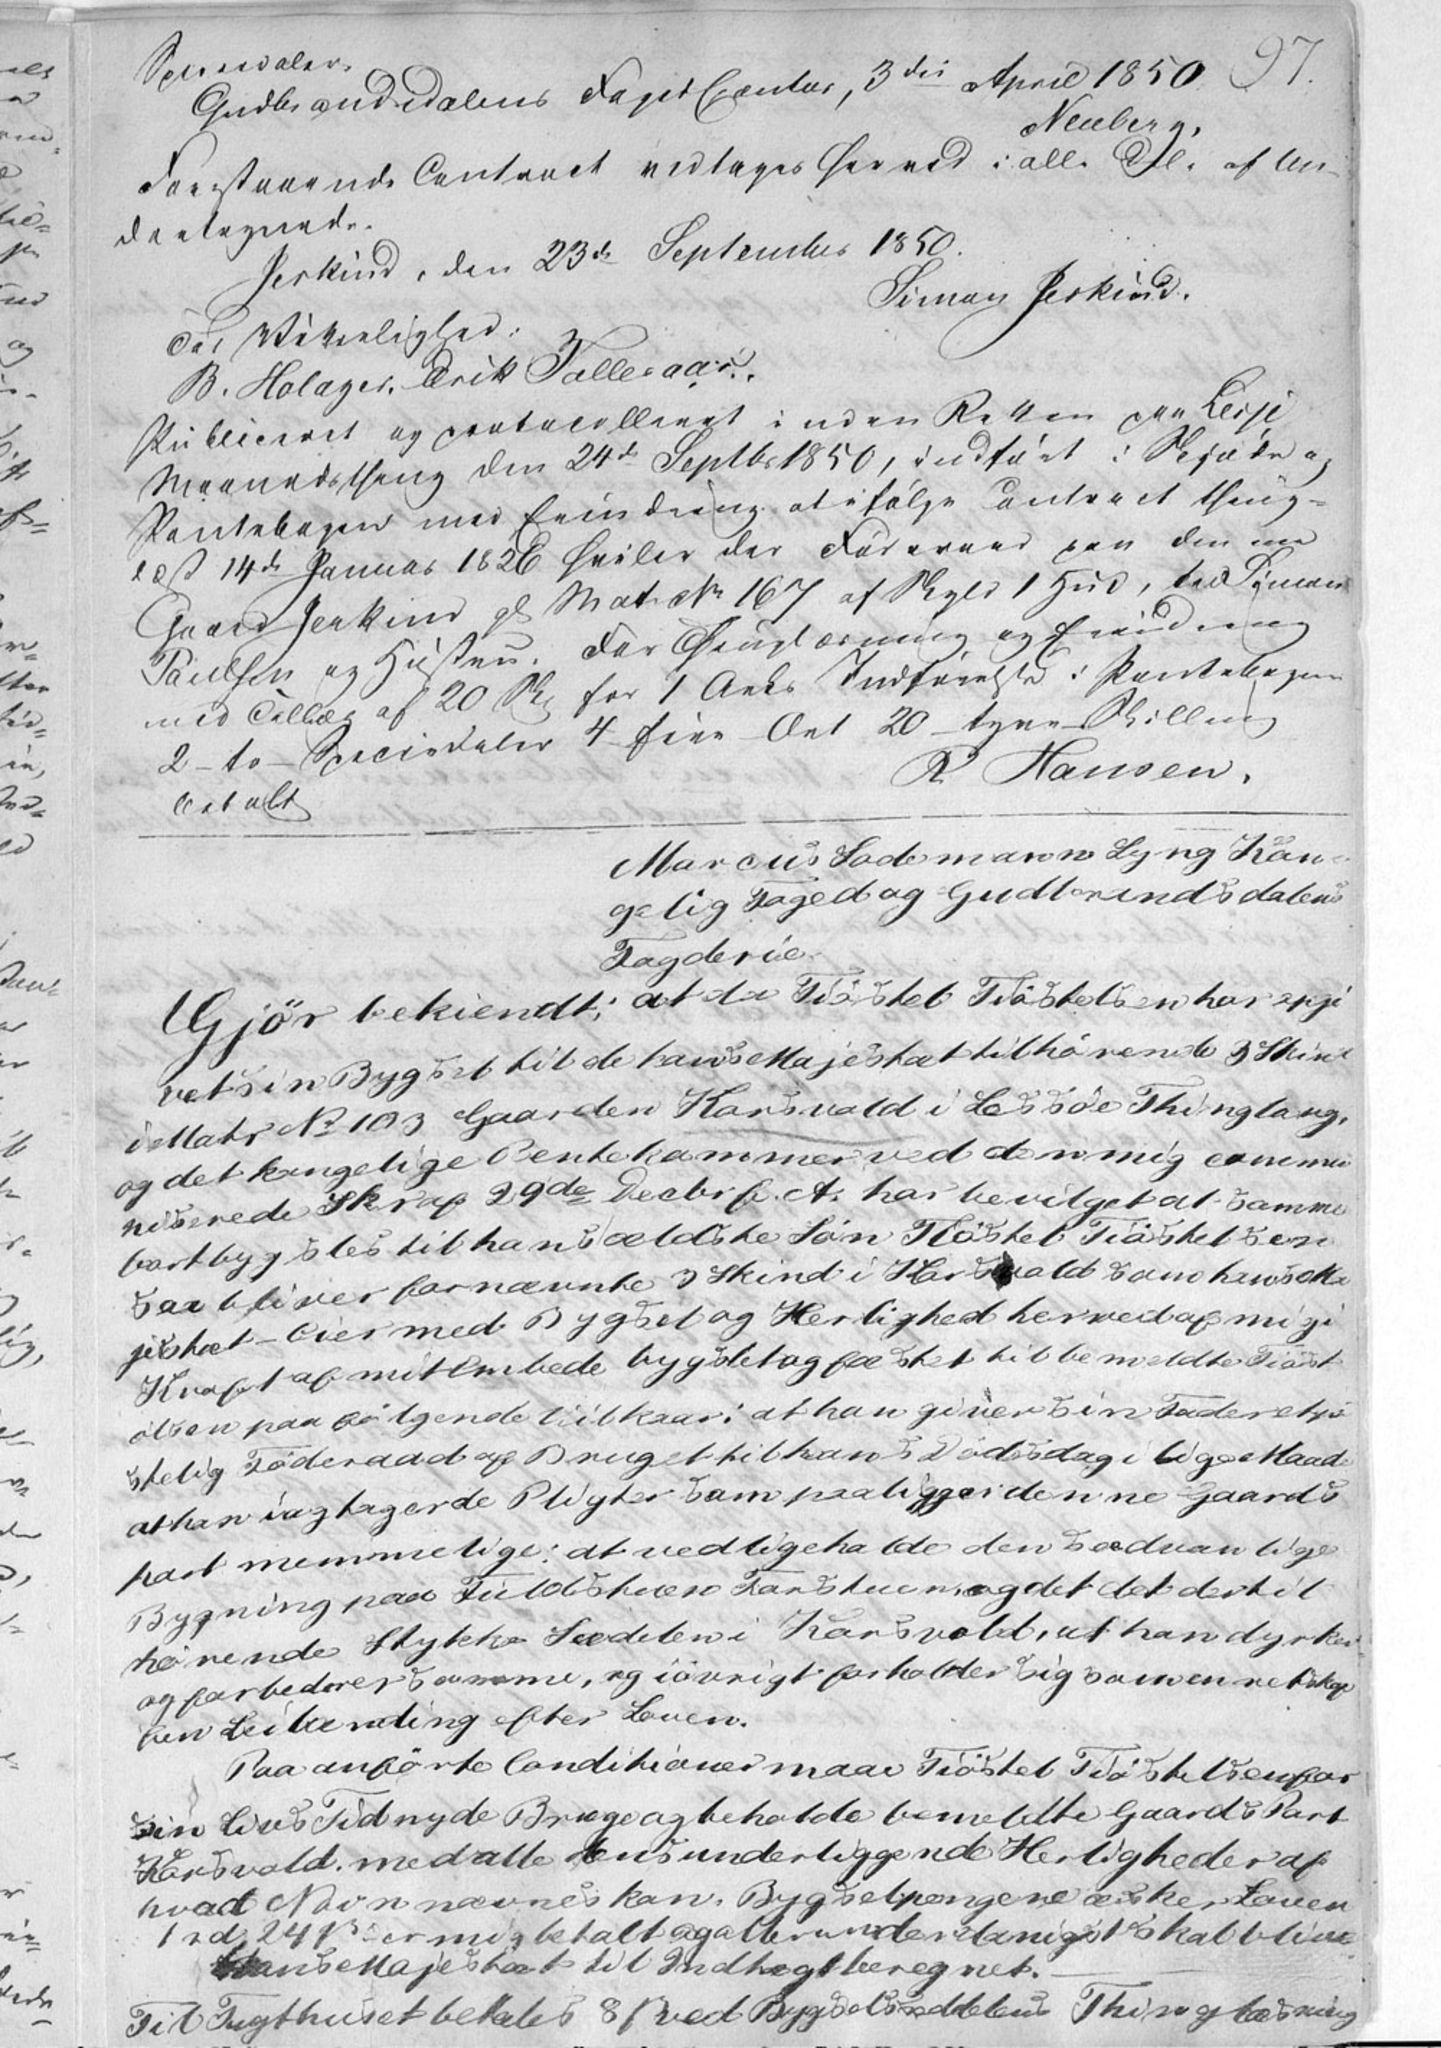 Speciedaler.
97.
Gudbrandsdalens Foged Contor, 3die April 1850.
Neuberg.
Forestaaende Contract vedtages herved i alle Dele af Un-
dertegnede.
Jerkind, den 23de September 1850.
Simon Jerkind.
Til Vitterlighed:
B. Holager. Erik Tollevaas.
Publiceret og protocolleret inden Retten paa Lesje
Maanedsthing den 24de Septbr 1850, indført i Skjøde og
Pantebogen med Erindring at ifølge Contract thing-
læst 14de Januar 1826 hviler der Føderaad paa denne
Gaard Jerkind gl Matr № 167 af Skyld 1 Hud, til Simon
Paulsen og Hustru. For Thinglæsning og Erindring
med Tillæg af 20 Sk for 1 Arks Indførelse i Pantebogen
2 - to - Speciedaler 4 fire Ort 20 - tyve Skilling
betalt
R Hansen.
Marcus Sademann Lyng Kon-
gelig Foged og Gudbrandsdalens
Fogderie
Gjör bekiendt; at da Tiøstel Tiøstelsen har opgi
vet sin Bygsel til de hans Majestæt tilhørende 3 Skind
i Matr № 103 Gaarden Korsvold i Lessøe Thinglaug,
og det kongelige Rentekammer ved den mig commu
niserede Skr af 29de Decbr f. A. har bevilget at samme
bortbygsles til hans ældste Søn Tiøstel Tiøstelsen
saa bliver fornævnte 3 Skind i Korsvold som hans Ma
jestæt Eier med Bygsel og Herlighed herved af mig i
Kraft af mit Embede bygslet og fæstet til bemeldte Tiøst
olsen paa følgende Vilkaar: at han giver sin Fader et
stelig Föderaad af Bruget til hans Dødsdag i lige Maade
at han iagtager de Pligter som paaligger denne Gaards
part nemmelige: at vedligeholde den sædvanlige
Bygning paa Fuldstuen Torstuen og det det dertil
hørende Stykke Sædelen i Korsvold, at han dyrker
og forbedrer samme, og iøvrigt forholder sig som en retskaf
fen Leilending efter Loven.
Paa anförte Conditioner maae Tiöstel Tiöstelsen for
sin Livs Tid nyde Bruge og beholde bemeldte Gaards Part
Korsvold. med alle dens underliggende Herligheder af
hvad Navn nævnes kan. Bygselpengene æsker Loven
1 rd, 24 ß er mig betalt og allerunderdanigst skal blive
Hans Majestæt til Indtægt beregnet.
Til Tugthuset betales 8 ß ved Bygselseddelens Thinglæsning